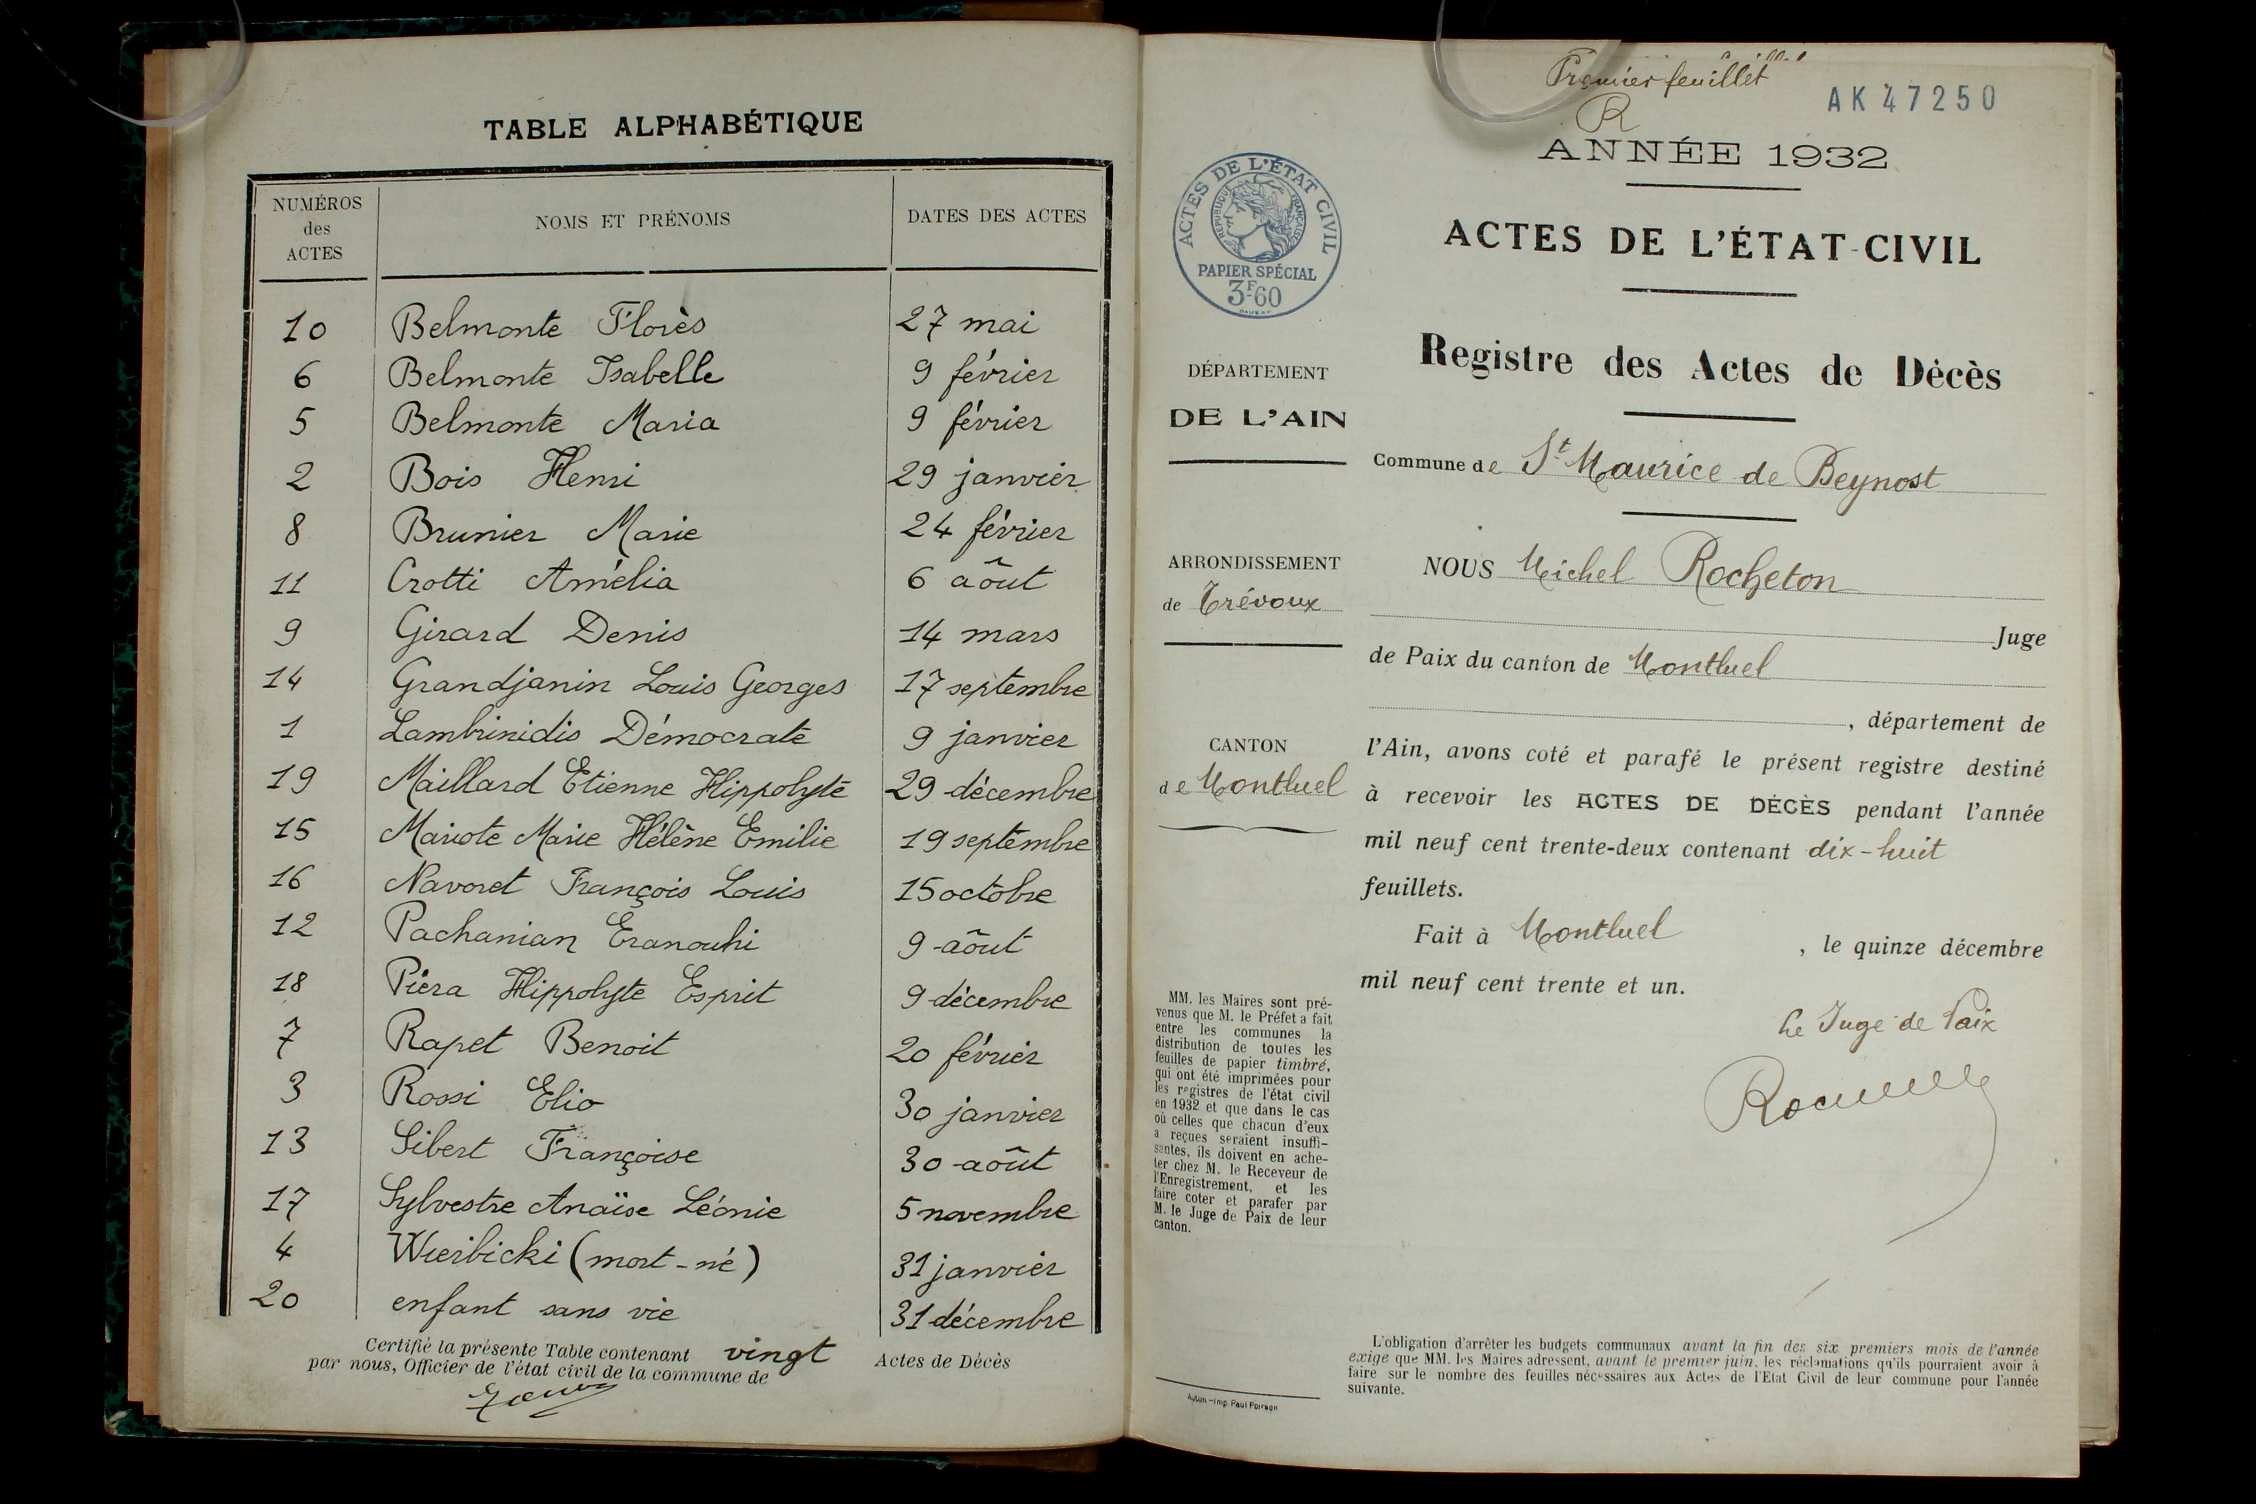 TABLE ALPHABÉTIQUE
NUMÉROS
des
ACTES
NOMS ET PRÉNOMS
DATES DES ACTES
10 Belmonte Florès 27 mai
6 Belmonte Isabelle 9 février
5 Belmonte Maria 9 février
2 Bois Henri 29 janvier
8 Brunier Marie 24 février
11 Crotti Amélia 6 aôut
9 Girard Denis 14 mars
14 Grandjanin Louis Georges 17 septembre
1 Lambrinidis Démocrate 9 janvier
19 Maillard Etienne Hippolyte 29 décembre
15 Mariote Marie Hélène Emilie 19 septembre
16 Navoret François Louis 15 octobre
12 Pachanian Eranouhi 9 aôut
18 Piéra Hippolyte Esprit 9 décembre
7 Rapet Benoit 20 février
3 Rossi Elio 30 janvier
13 Sibert Françoise 30 aôut
17 Sylvestre Anaïse Léonie 5 novembre
4 Wierbicki (mort-né) 31 janvier
20 enfant sans vie 31 décembre
Certifié la présente Table contenant vingt Actes de Décès
par nous, Officier de l'état civil de la commune de
Premier feuillet
R
AK 47250
ANNÉE 1932
ACTES DE L'ÉTAT CIVIL
RÉPUBLIQUE FRANÇAISE
PAPIER SPÉCIAL
3F60
ACTES DE L'ÉTAT-CIVIL
Registre des Actes de Décès
DÉPARTEMENT
DE L'AIN
Commune de St Maurice de Beynost
ARRONDISSEMENT
de Trévoux
CANTON
de Montluel
NOUS Michel Rocheton
Juge
de Paix du canton de Montluel
, département de
l'Ain, avons coté et parafé le présent registre destiné
à recevoir les ACTES DE DÉCÈS pendant l'année
mil neuf cent trente-deux contenant dix-huit
feuillets.
Fait à Montluel , le quinze décembre
mil neuf cent trente et un.
Le Juge de Paix
MM. les Maires sont pré-
venus que M. le Préfet a fait
entre les communes la
distribution de toutes les
feuilles de papier timbré,
qui ont été imprimées pour
les registres de l'état civil
en 1932 et que dans le cas
où celles que chacun d'eux
a reçues seraient insuffi-
santes, ils doivent en ache-
ter chez M. le Receveur de
l'Enregistrement, et les
faire coter et parafer par
M. le Juge de Paix de leur
canton.
Autun - Imp. Paul Poirson
L'obligation d'arrêter les budgets communaux avant la fin des six premiers mois de l'année
exige que MM. les Maires adressent, avant le premier juin, les réclamations qu'ils pourraient avoir à
faire sur le nombre des feuilles nécessaires aux Actes de l'Etat Civil de leur commune pour l'année
suivante.